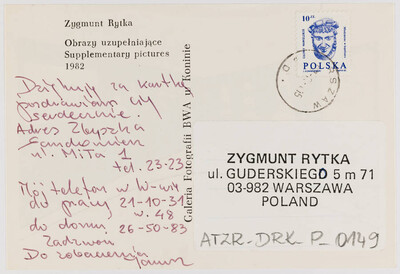 Zygmunt Rytka
Obrazy uzupełniające
Supplementary pictures
1982
Dziękuję za kartkę
pozdrawiam Cię
serdecznie.
Adres Zbyszka
Sandomierz
ul. Miła 1
tel. 23-23
Mój telefon w W-wie
do pracy 21-10-31
w. 48
do domu 26-50-83
Zadzwoń
Do zobaczenia
Janusz
Galeria Fotografii BWA w Koninie
10 zł
POLSKA
ZYGMUNT RYTKA
ul. GUDERSKIEGO 5 m 71
03-982 WARSZAWA
POLAND
ATZR-DRK-P-0149